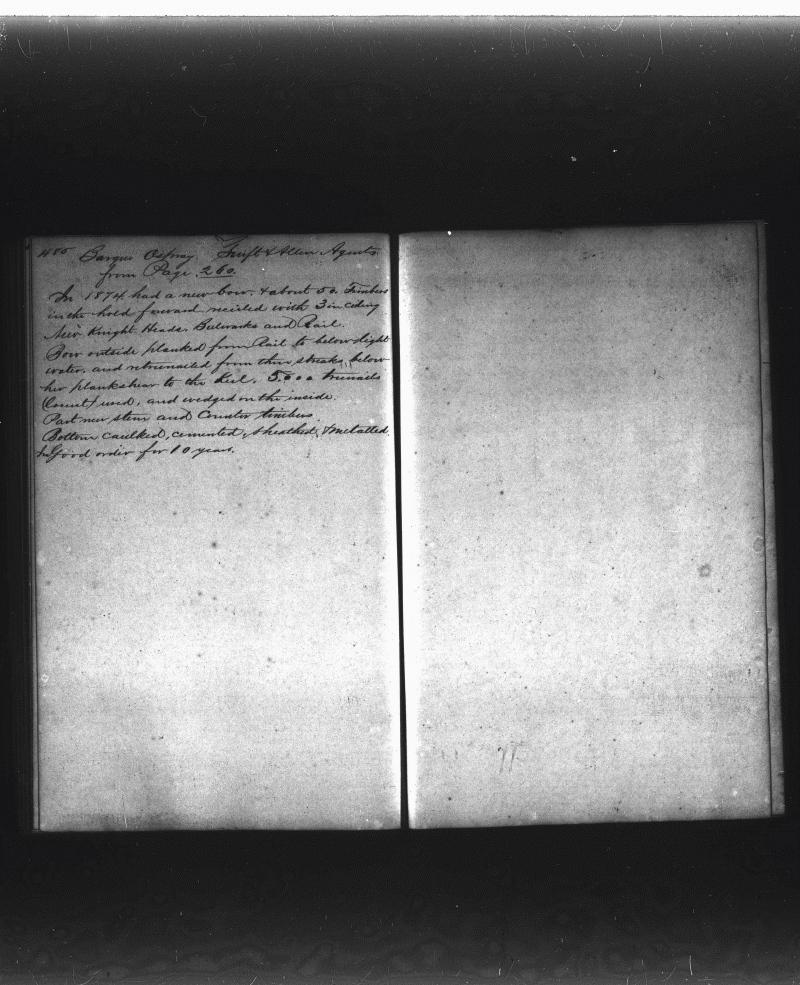 Barque Osprey Swift & Allen Agents
from Page 260.
In 1874 had a new bow, & about 50 Timbers
in the hold forward, recieled with 3 in ceiling
New Knight Heads, Bulwarks and Rail.
Bow outside planked from Rail to below light
water, and retrenailed from three streaks below
her plankshear to the keel. 5.000 trenails
(Locust) used, and wedged on the inside.
Part new stern and Counter timbers.
Bottom caulked, cemented, sheathed, & metalled.
In Good order for 10 years.